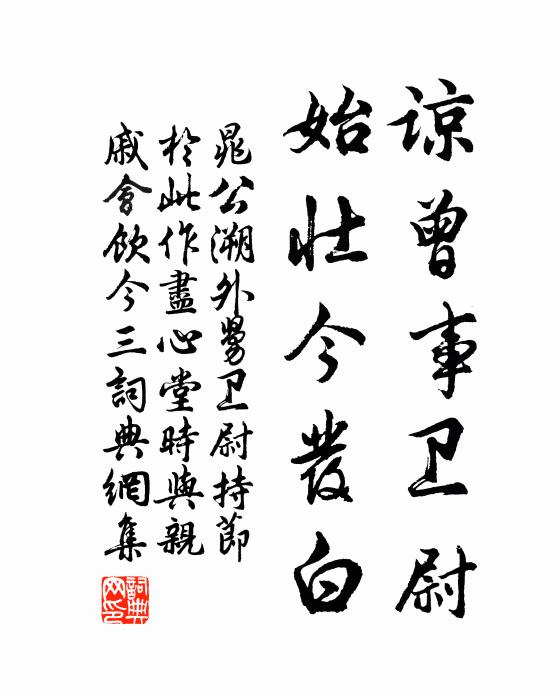 谅曾事卫尉
始壮今發白
晁公溯外舅卫尉持節
於此作盡心堂時與親
戚會飲今三詞典網集
詞典网印